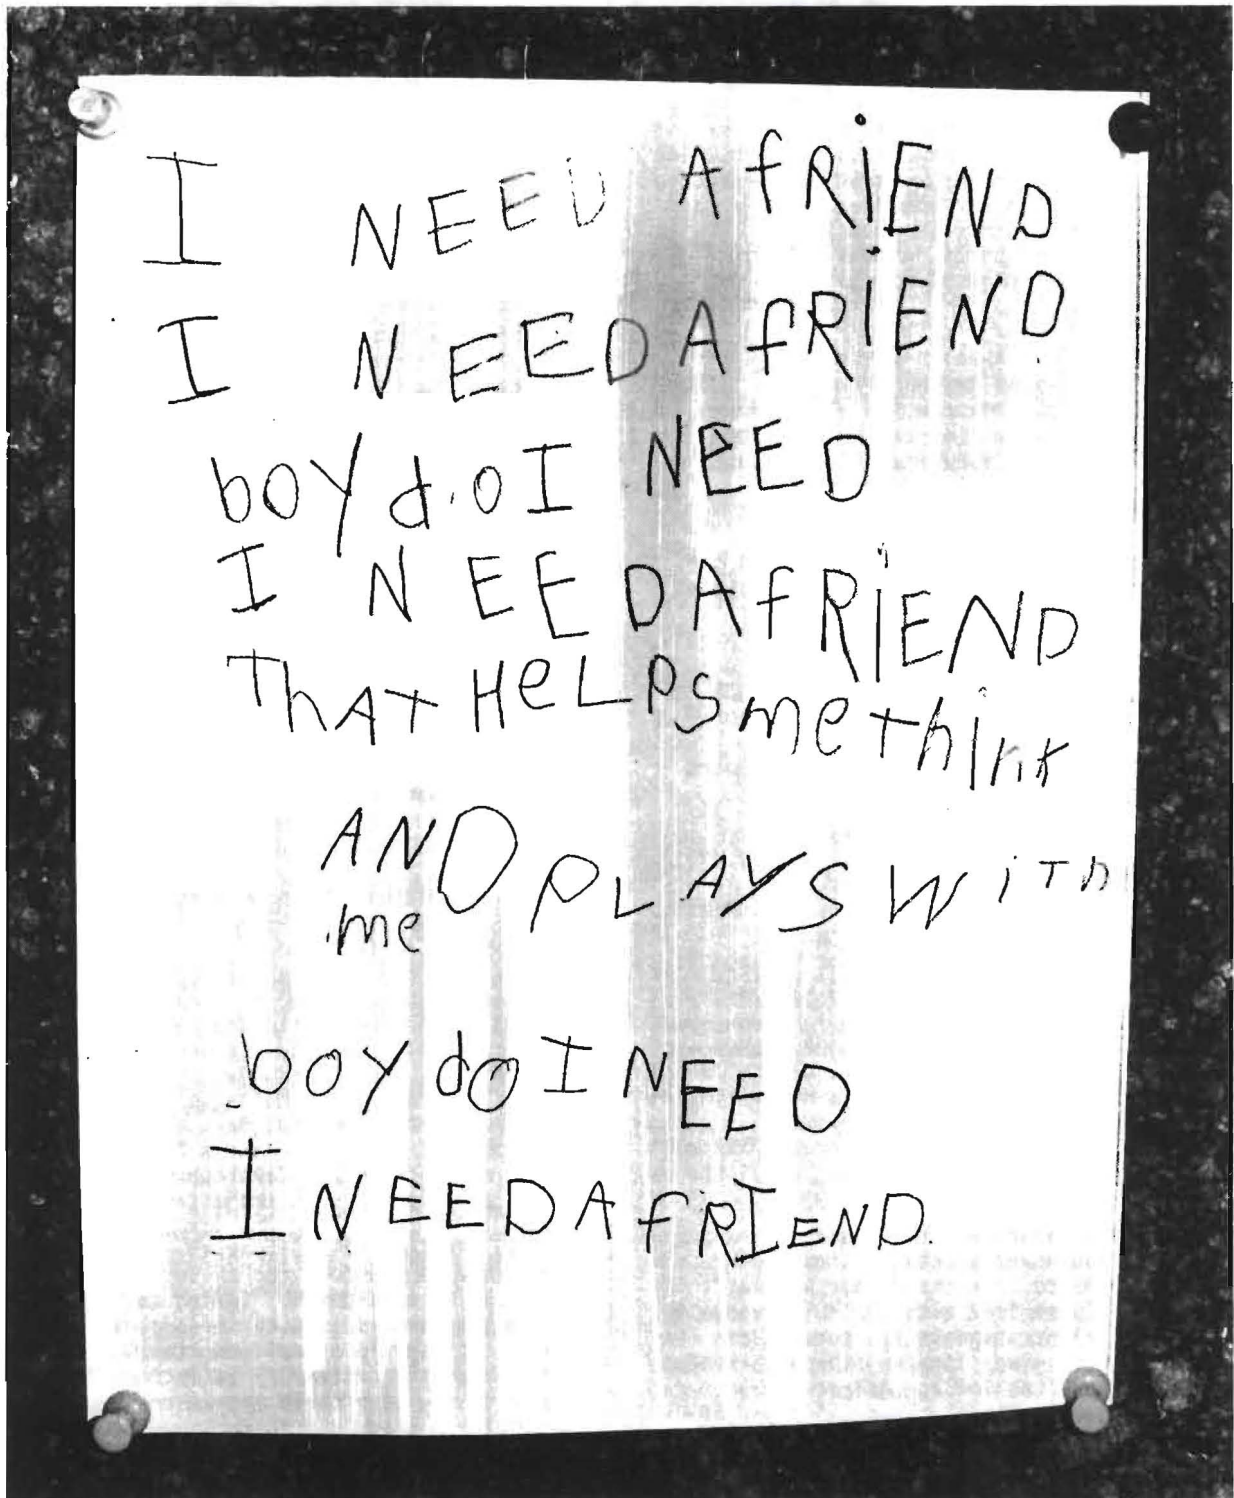 I NEED A fRiEND
I NEED A fRiEND
boy do I NEED
I NEED A fRiEND
ThAT HeLPS me think
AND PLAYS WiTh
me
boy do I NEED
I NEED A fRIEND